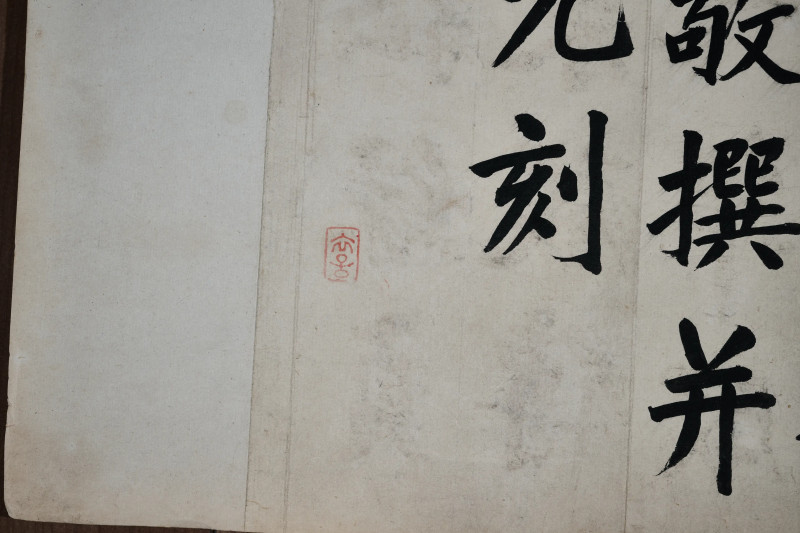 敬撰并
刻